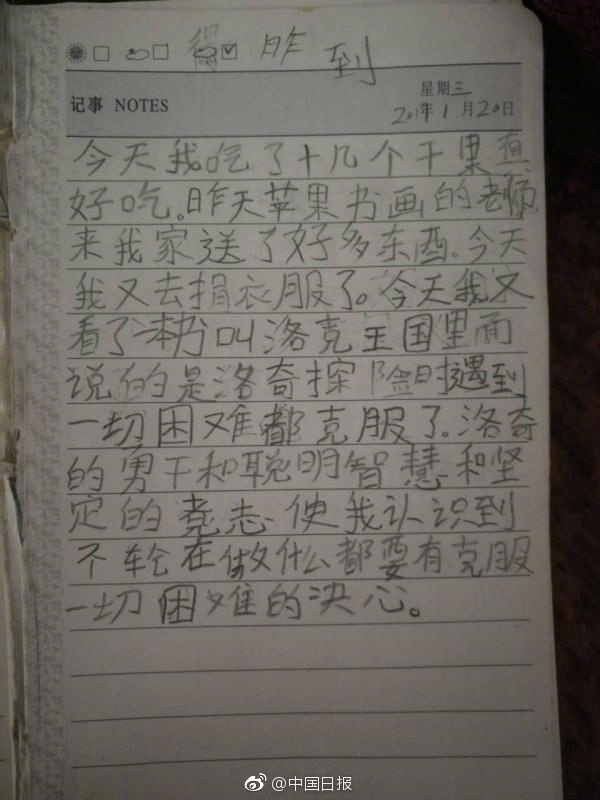 得 昨 到
记事 NOTES
星期三
1月20日
今天我吃了十几个干果真
好吃。昨天苹果书画的老师
来我家送了好多东西.今天
我又去捐衣服了。今天我又
看了一本书叫洛克王国里面
说的是洛奇探险时遇到
一切困难都克服了。洛奇
的勇干和聪明智慧和坚
定的意志使我认识到
不轮在做什么都要有克服
一切困难的决心。
@中国日报